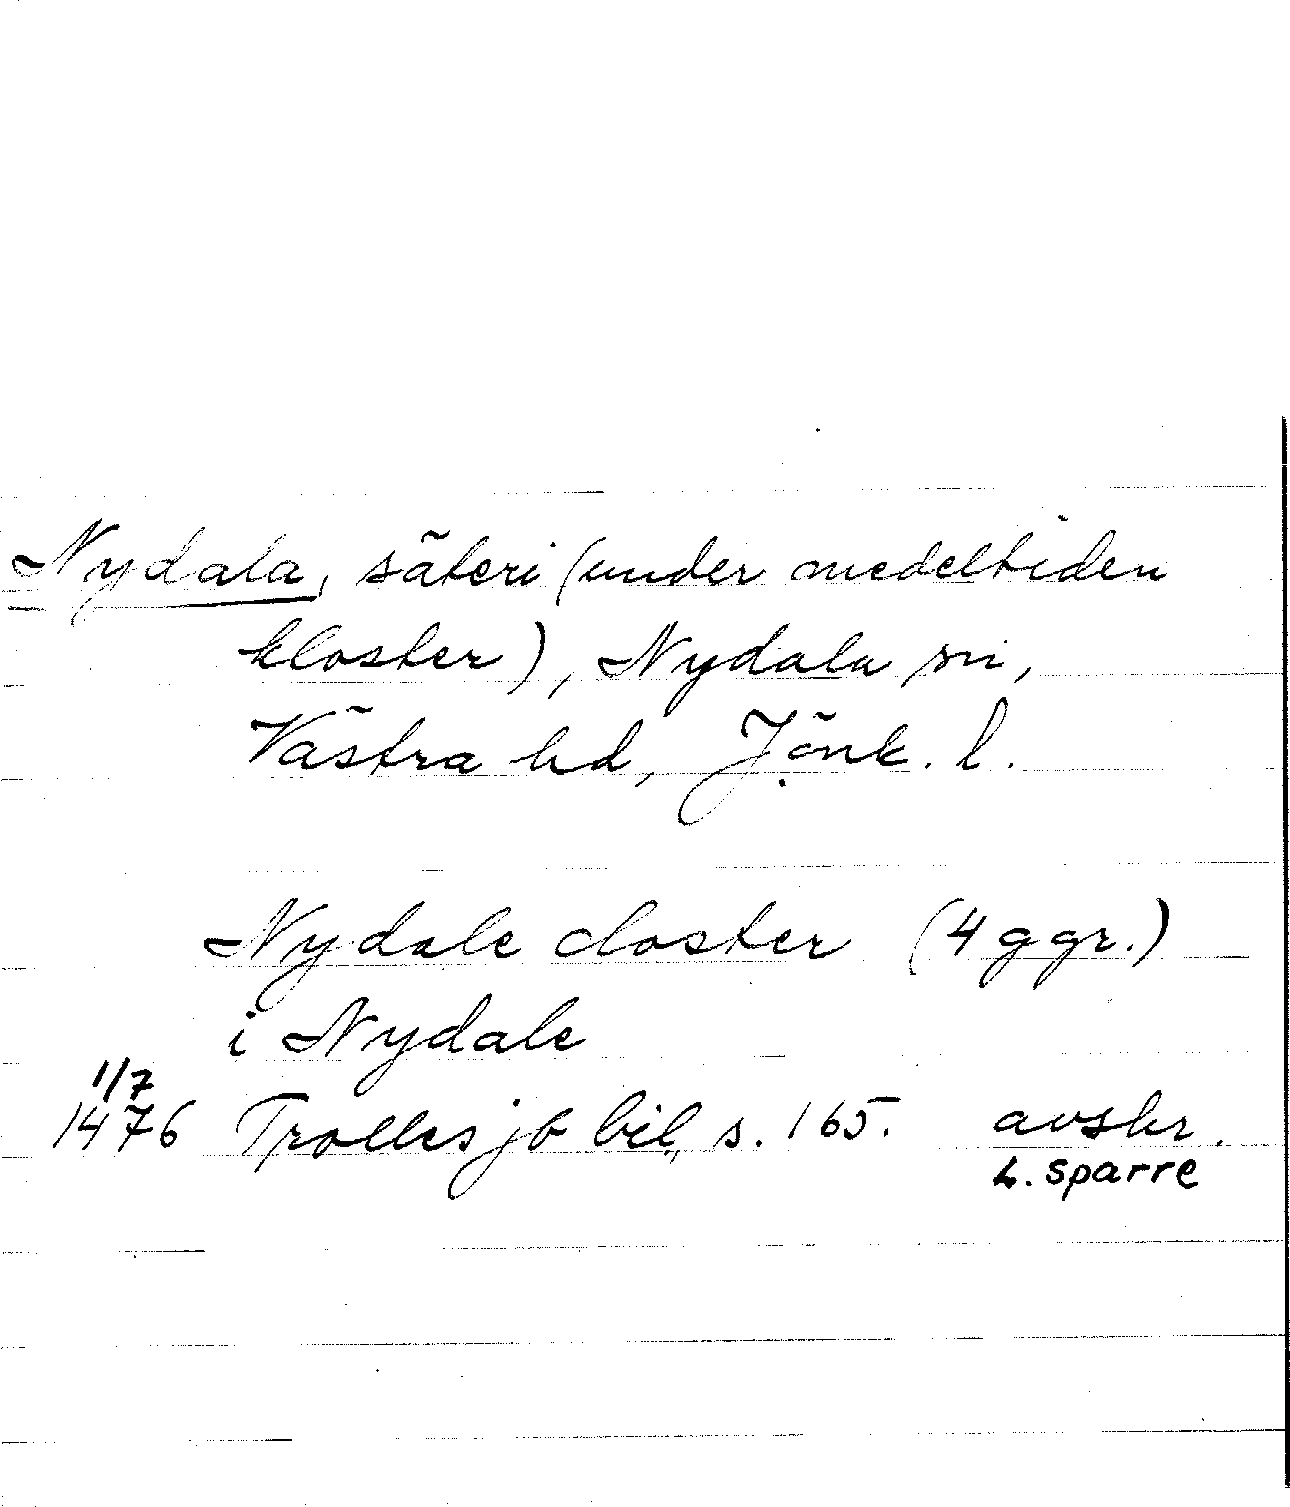 Nydala, säteri (under medeltiden
kloster), Nydala sn,
Västra hd, Jönk. l.
Nydale closter (4 ggr.)
i Nydale
1/7
1476 Trolles jb bil., s. 165. avskr.
L. Sparre